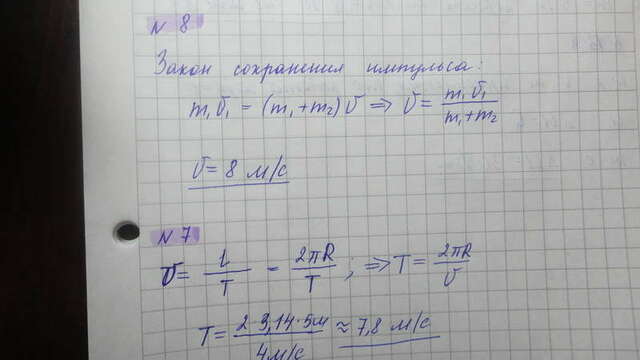 N 8
Закон сохранения импульса:
m₁ v₁ = (m₁ + m₂) v ⇒ v = m₁ v₁ / m₁ + m₂
v = 8 м/с
N 7
v = l / T = 2πR / T ; ⇒ T = 2πR / v
T = 2·3,14·5м / 4м/с ≈ 7,8 м/с